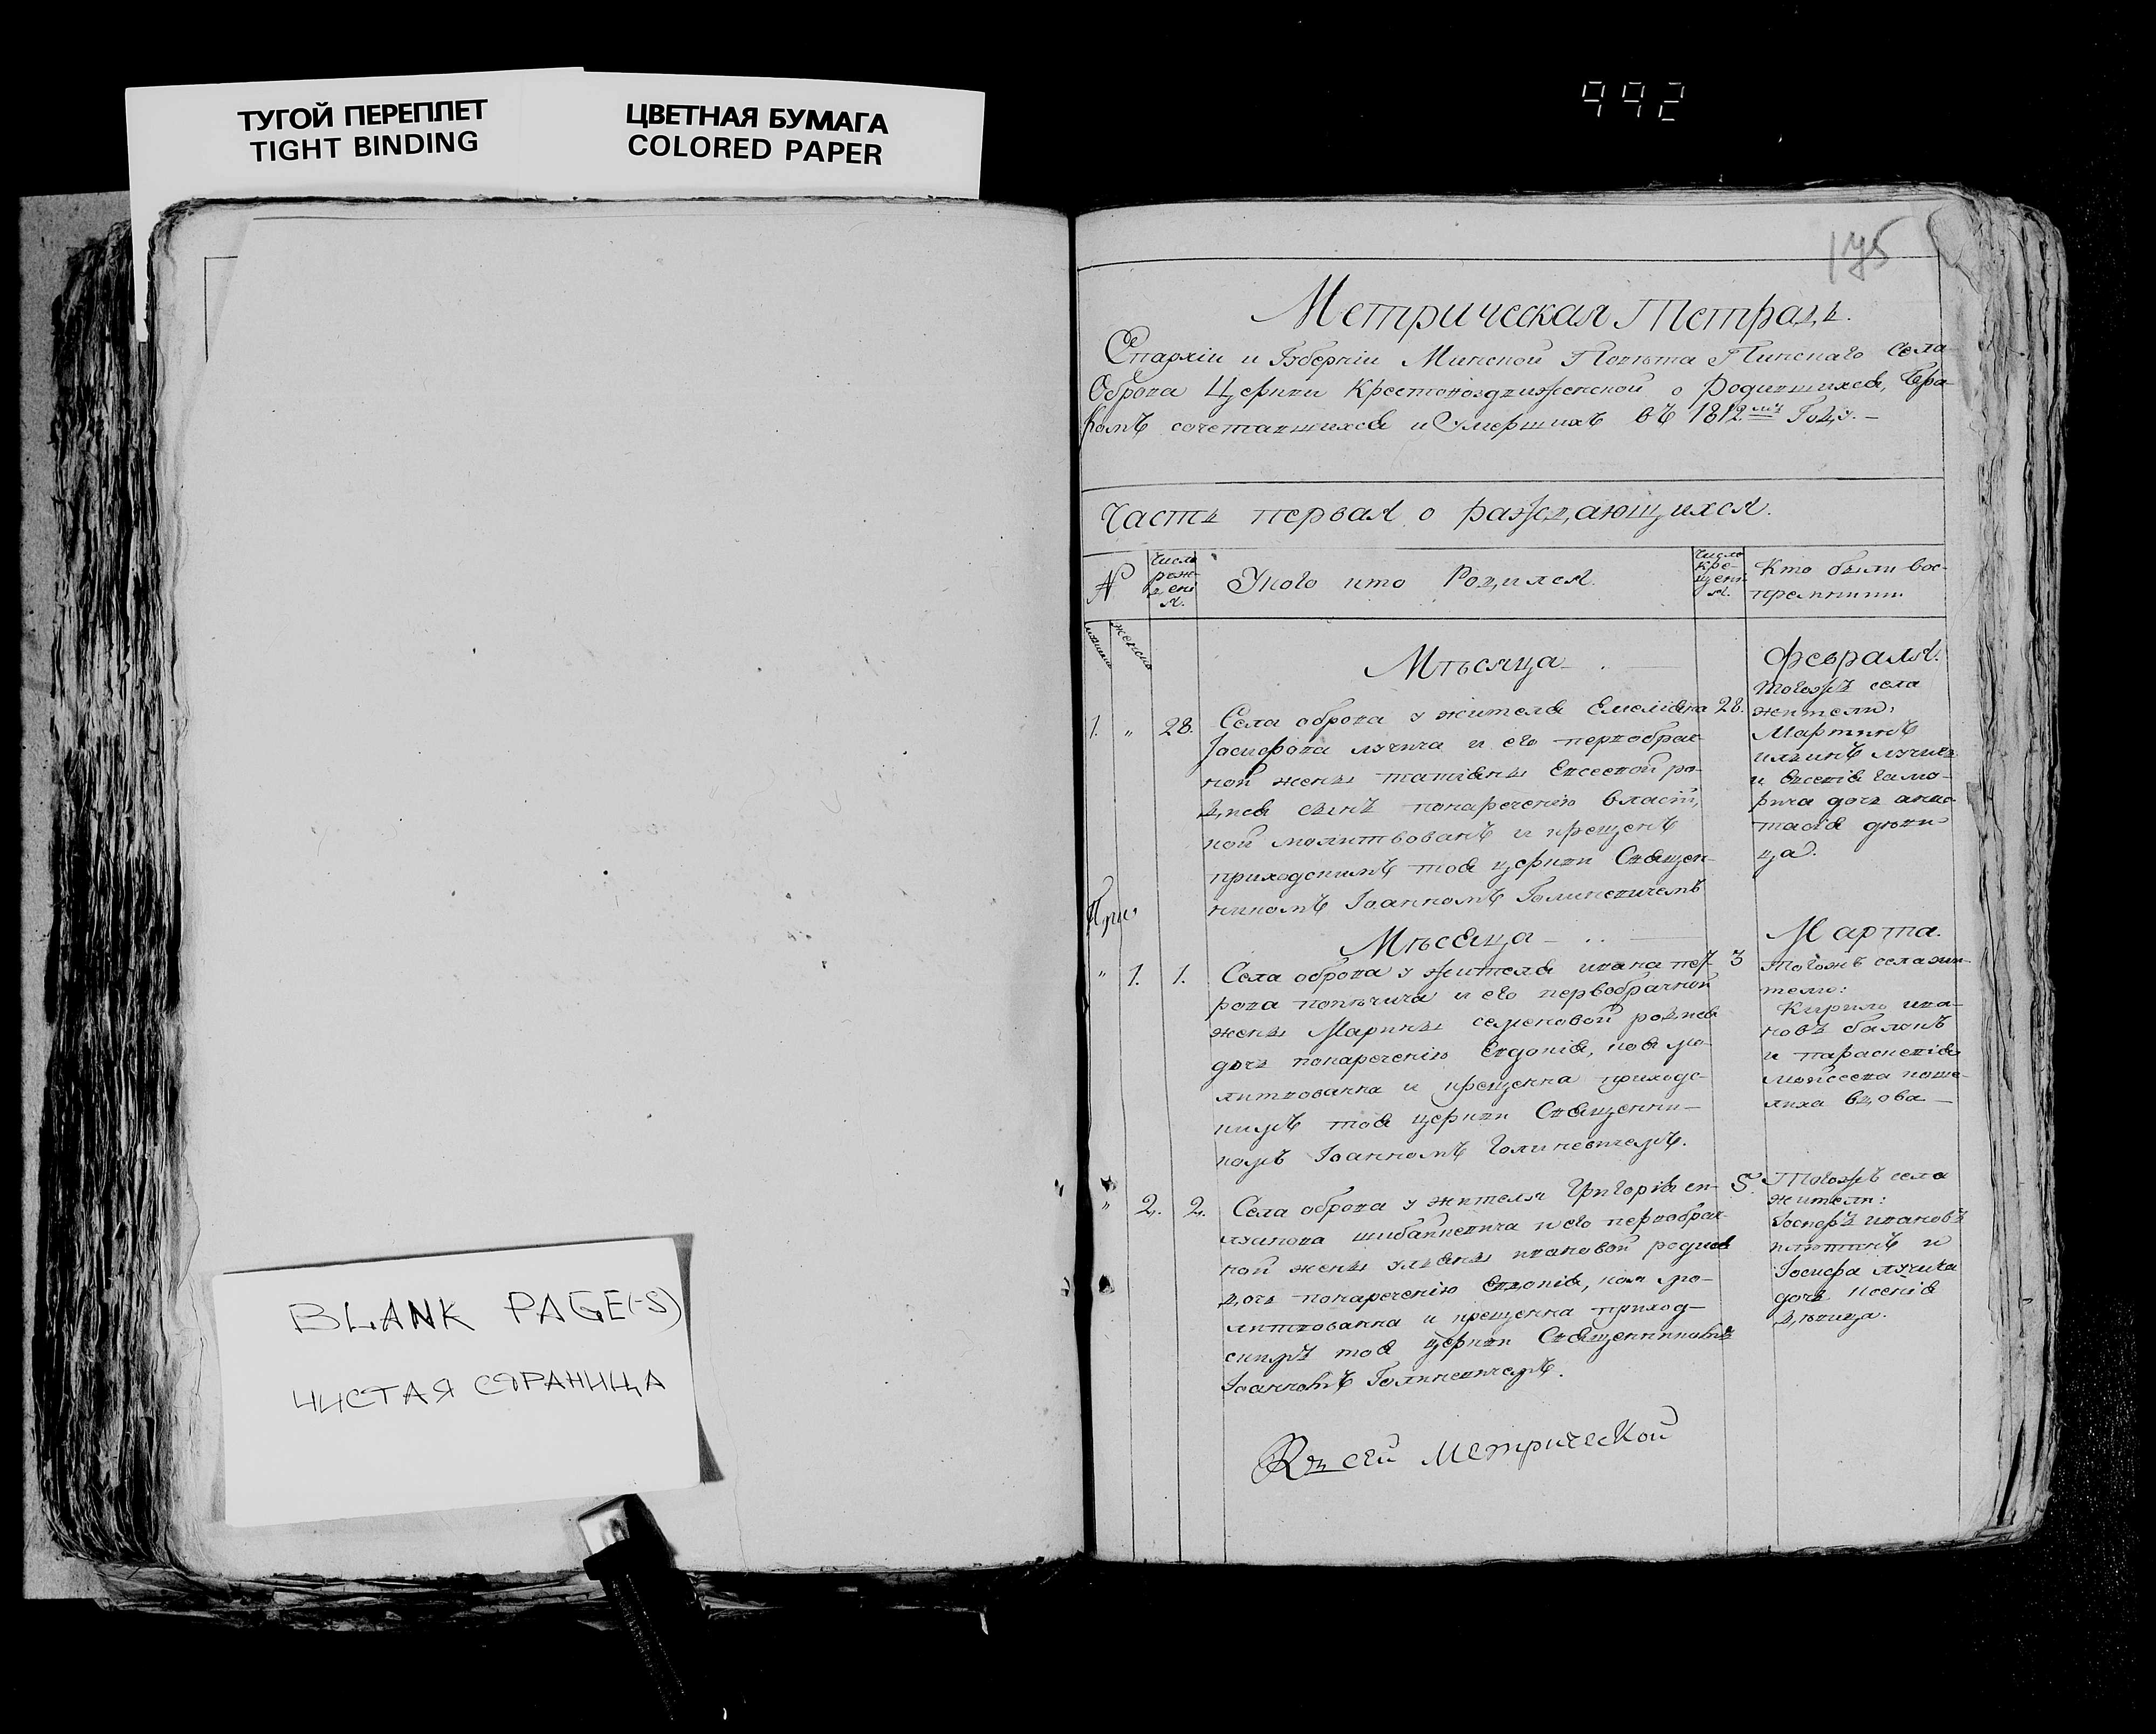 992
ТУГОЙ ПЕРЕПЛЕТ
TIGHT BINDING
ЦВЕТНАЯ БУМАГА
COLORED PAPER
BLANK PAGE(-S)
ЧИСТАЯ СТРАНИЦА
175
Метрическая Тетрадь.
Епархіи и Губерніи Минской Повѣта Пинскаго Села
Оброва Церкви Крестовоздвиженской о Родившихся, бра-
комъ сочетавшихся и Умершихъ въ 1812мъ Году.
Часть первая о раждающихся.
№
Число рож-денія.
У кого кто Родился.
Число кре-щенія.
Кто были вос-
пріемники
женска
Мѣсяца
Февраля.
1. " 28.
Села оброва у жителя Емеліана
Іосифова лучича и его первобрач-
ной жены татіаны Евсеевой ро-
дися сынъ понареченію
кой молитвованъ и крещенъ
приходскимъ тоя церкви Священ-
никомъ Іоанномъ Голиневичемъ
28.
Тогожъ села
жители:
Мартинъ
ильинъ лучичъ
и
дочь анас-
тасія дѣви-
ца.
Мѣсяца
Марта.
" 1. 1.
Села оброва у жителя ивана
и его первобрачной
жены Марины семеновой родися
дочь понареченію Евдокія, коя мо-
литвованна и крещенна приходс-
кимъ тоя церкви Священни-
комъ Іоанномъ Голиневичемъ.
3
Тогожъ села жи-
тели:
Кирилъ ива-
новъ
и параскевія
мойсеева
вдова
" 2. 2.
Села оброва у жителя Григорія
и его первобрач-
ной жены ульяны ивановой родися
дочь понареченію Евдокія, коя мо-
литвованна и крещенна приход-
скимъ тоя церкви Священникомъ
Іоанномъ Голиневичемъ.
5.
Тогожъ села
жители:
Іосифъ ивановъ
и
Іосифа лучича
дочь ксенія
дѣвица.
Къ сей метрической